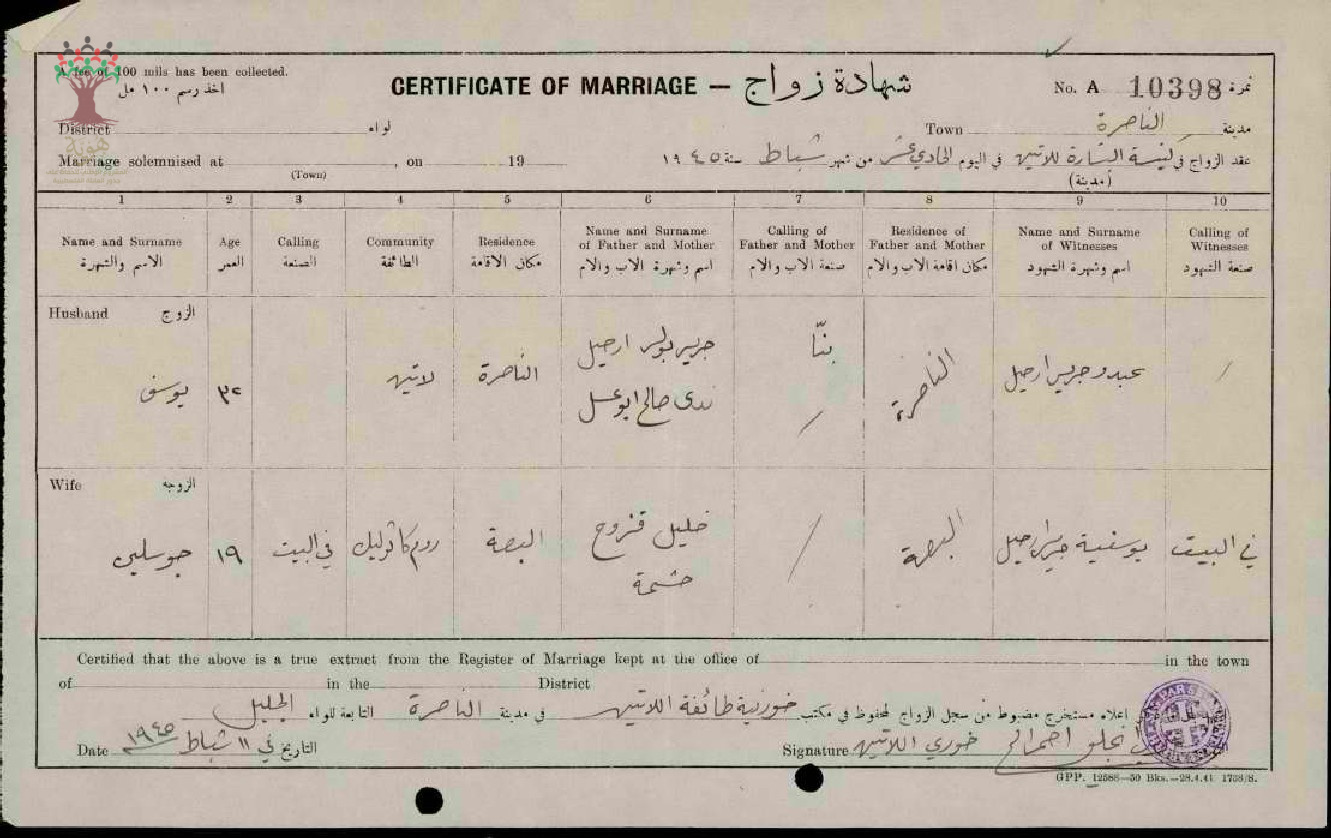 A fee of 100 mils has been collected.
اخذ رسم ١٠٠ مل
CERTIFICATE OF MARRIAGE — شهادة زواج
No. A 10398 نمرة
District لواء
Town الناصرة مدينة
Marriage solemnised at , on 19
(Town)
عقد الزواج في كنيسة البشارة للاتين في اليوم الحادي عشر من شهر شباط سنة ١٩٤٥
(مدينة)
1 2 3 4 5 6 7 8 9 10
Name and Surname
الاسم والشهرة
Age
العمر
Calling
الصنعة
Community
الطائفة
Residence
مكان الاقامة
Name and Surname of Father and Mother
اسم وشهرة الاب والام
Calling of Father and Mother
صنعة الاب والام
Residence of Father and Mother
مكان اقامة الاب والام
Name and Surname of Witnesses
اسم وشهرة الشهود
Calling of Witnesses
صنعة الشهود
Husband الزوج
يوسف
٣٢
لاتين
الناصرة
جريس بولس ارحيل
ندى صالح ابو عسل
بنّا
الناصرة
عبدو جريس ارحيل
Wife الزوجه
١٩
في البيت
روم كاثوليك
البصة
خليل
البصة
ارحيل
في البيت
Certified that the above is a true extract from the Register of Marriage kept at the office of in the town
of in the District
اعلاه مستخرج مضبوط من سجل الزواج المحفوظ في مكتب خورنية طائفة اللاتين في مدينة الناصرة التابعة للواء الجليل
Date التاريخ في ١١ شباط ١٩٤٥
Signature خوري اللاتين
GPP. 12588—50 Bks.—28.4.41 1758/S.
هوية